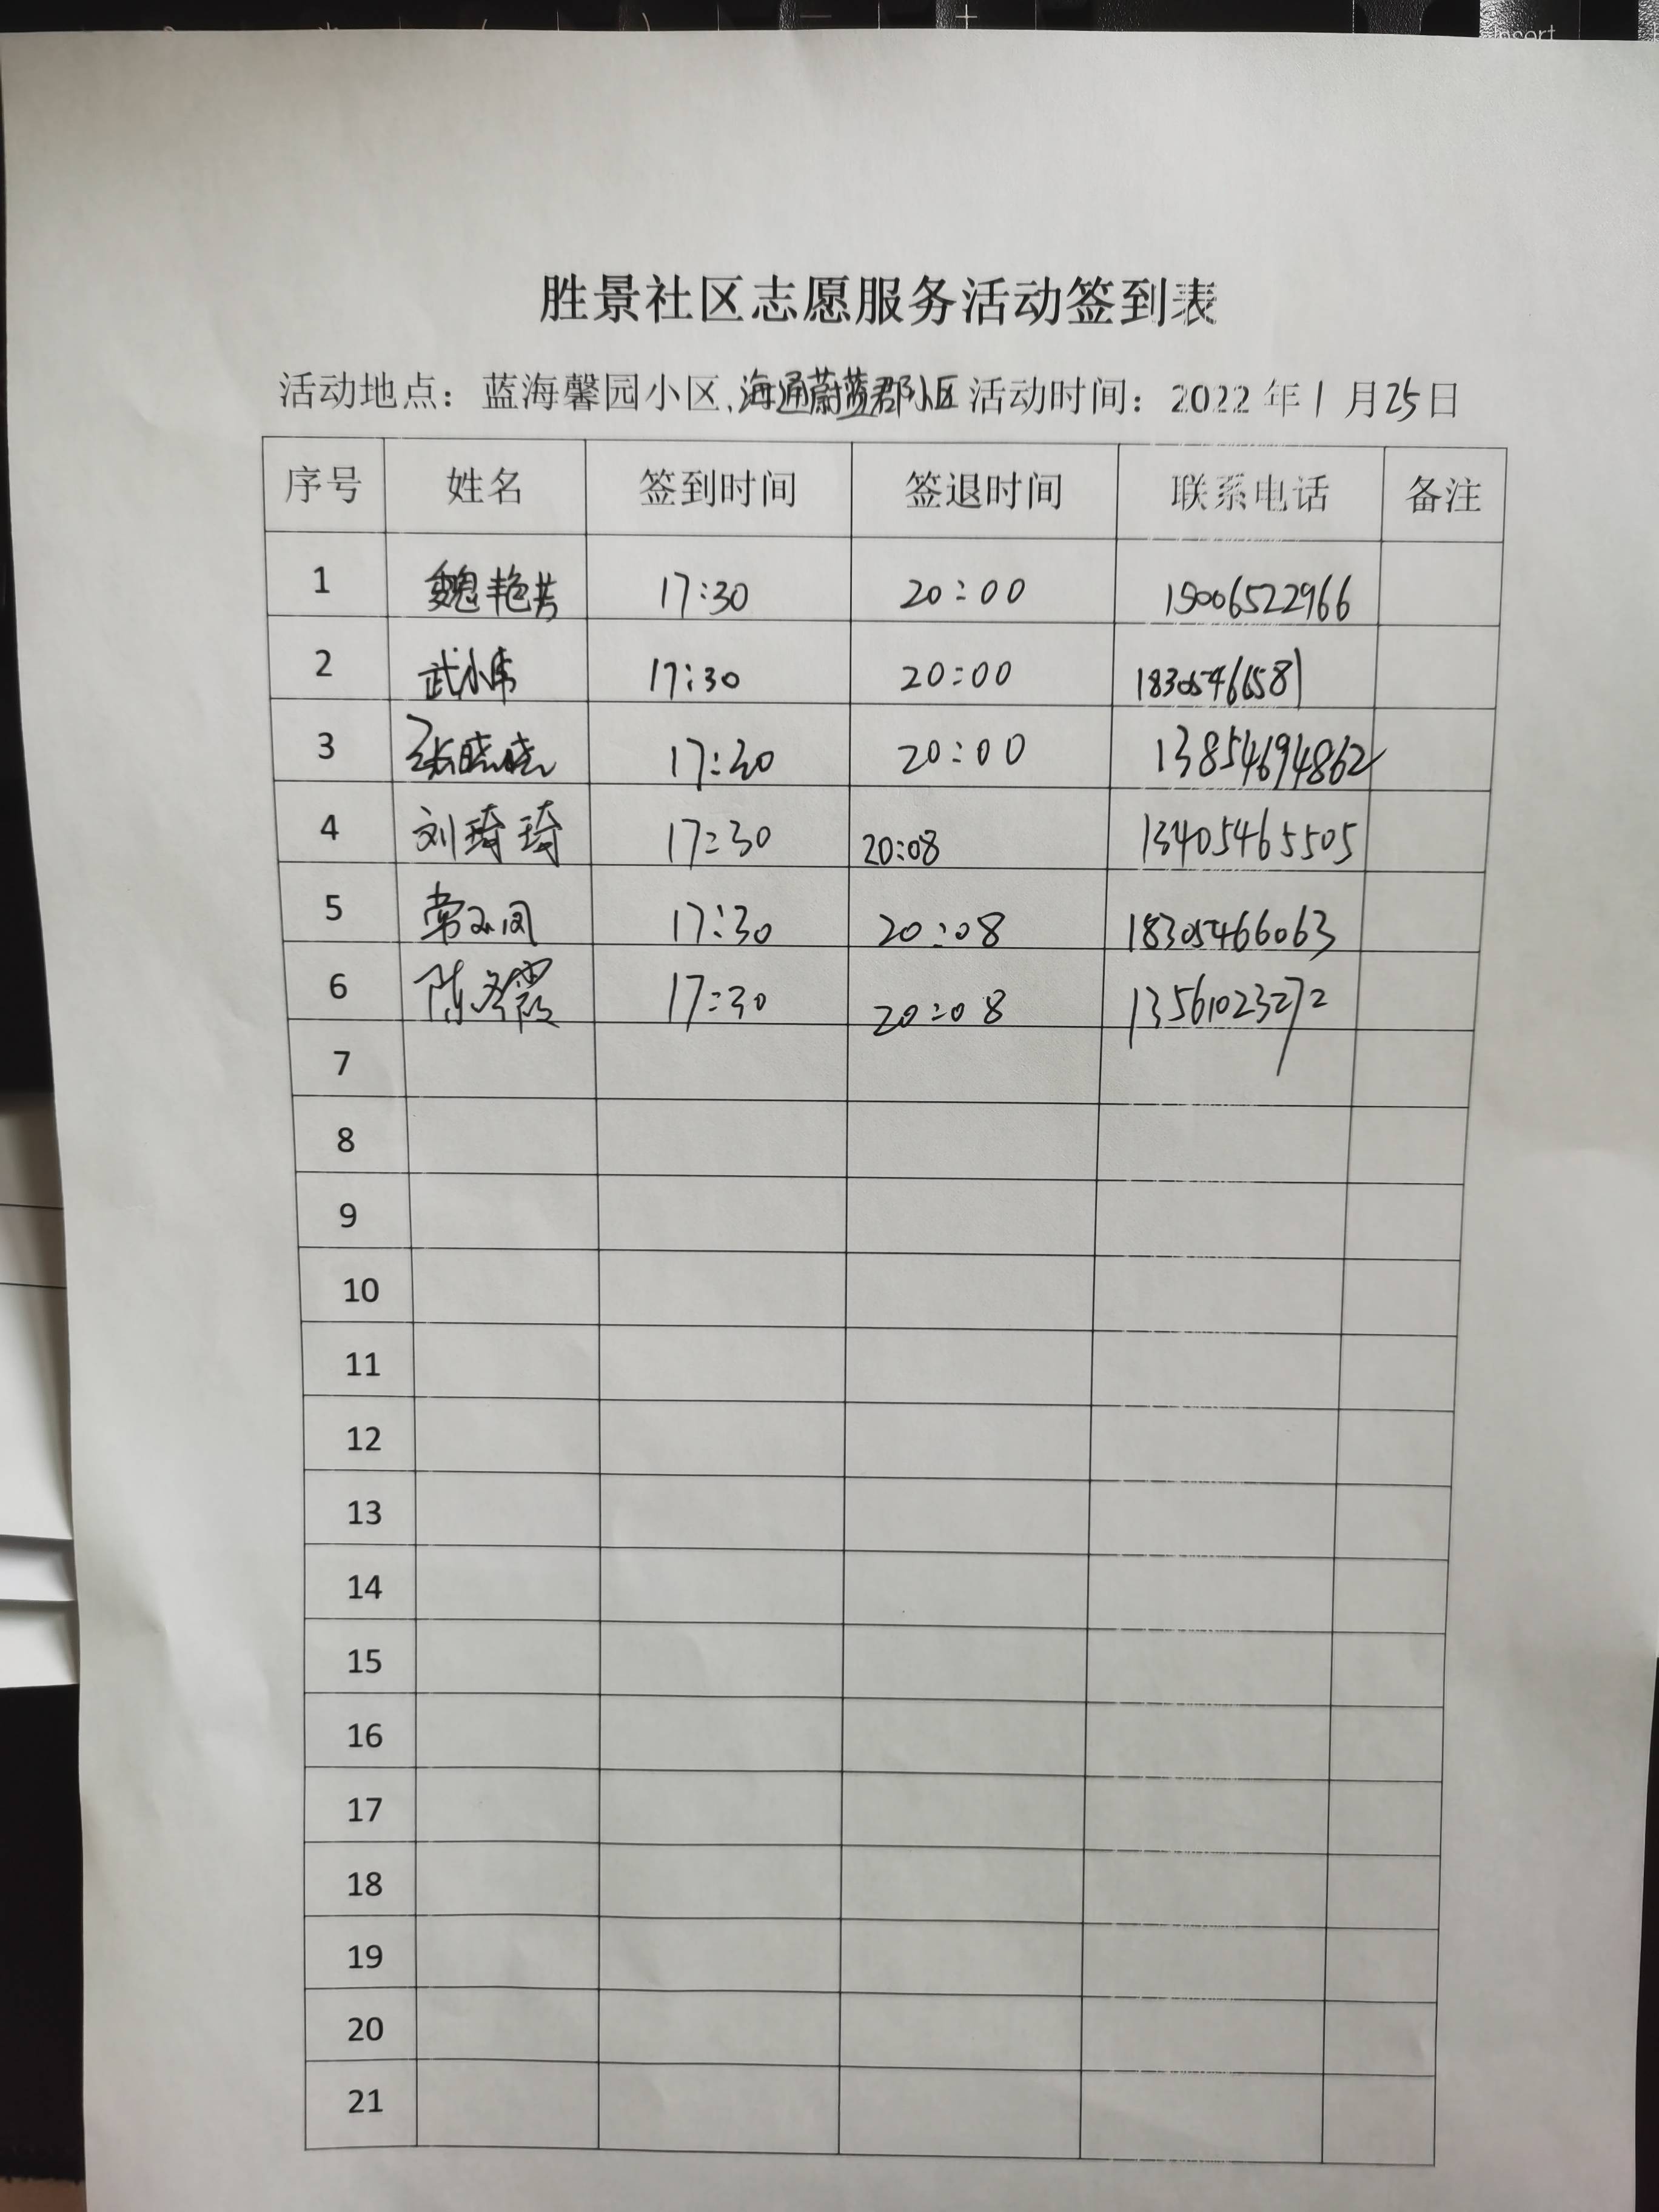 胜景社区志愿服务活动签到表
活动地点：蓝海馨园小区、海通蔚蓝郡小区 活动时间：2022年1月25日
序号 姓名 签到时间 签退时间 联系电话 备注
1 魏艳芳 17:30 20:00 15006522966
2 武小伟 17:30 20:00 18305466581
3 张晓晓 17:30 20:00 13854694862
4 刘琦琦 17:30 20:08 13405465505
5 常 17:30 20:08 18305466063
6 陈冬霞 17:30 20:08 13561023272
7
8
9
10
11
12
13
14
15
16
17
18
19
20
21